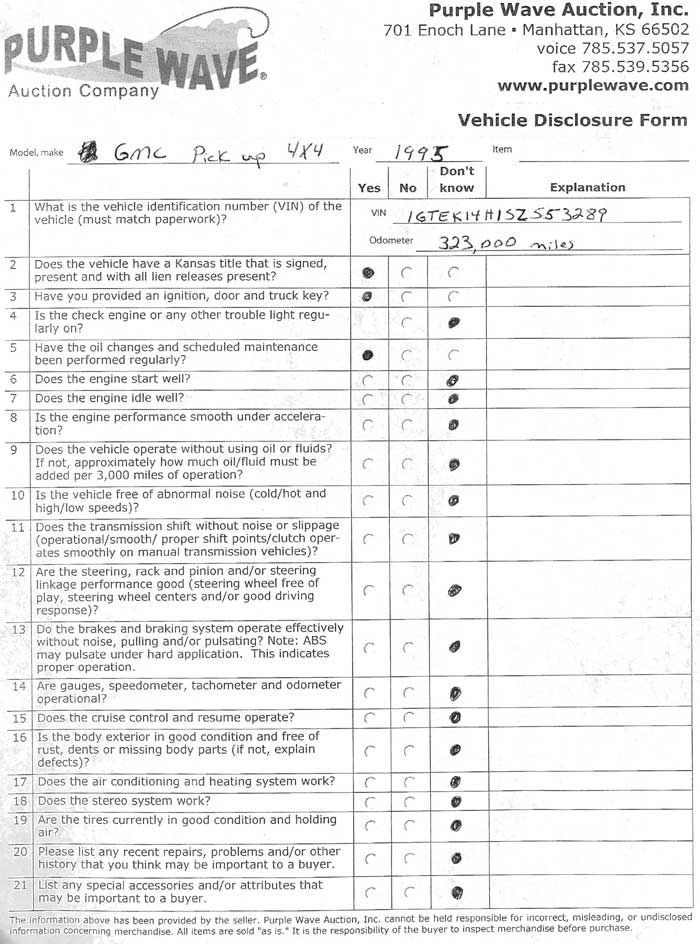 PURPLE WAVE®
Auction Company
Purple Wave Auction, Inc.
701 Enoch Lane ▪ Manhattan, KS 66502
voice 785.537.5057
fax 785.539.5356
www.purplewave.com
Vehicle Disclosure Form
Model, make GMC Pick up 4X4 Year 1995 Item
Yes No Don't know Explanation
1 What is the vehicle identification number (VIN) of the
vehicle (must match paperwork)?
VIN 1GTEK14H1SZ553289
Odometer 323,000 miles
2 Does the vehicle have a Kansas title that is signed,
present and with all lien releases present?
3 Have you provided an ignition, door and truck key?
4 Is the check engine or any other trouble light regu-
larly on?
5 Have the oil changes and scheduled maintenance
been performed regularly?
6 Does the engine start well?
7 Does the engine idle well?
8 Is the engine performance smooth under accelera-
tion?
9 Does the vehicle operate without using oil or fluids?
If not, approximately how much oil/fluid must be
added per 3,000 miles of operation?
10 Is the vehicle free of abnormal noise (cold/hot and
high/low speeds)?
11 Does the transmission shift without noise or slippage
(operational/smooth/ proper shift points/clutch oper-
ates smoothly on manual transmission vehicles)?
12 Are the steering, rack and pinion and/or steering
linkage performance good (steering wheel free of
play, steering wheel centers and/or good driving
response)?
13 Do the brakes and braking system operate effectively
without noise, pulling and/or pulsating? Note: ABS
may pulsate under hard application. This indicates
proper operation.
14 Are gauges, speedometer, tachometer and odometer
operational?
15 Does the cruise control and resume operate?
16 Is the body exterior in good condition and free of
rust, dents or missing body parts (if not, explain
defects)?
17 Does the air conditioning and heating system work?
18 Does the stereo system work?
19 Are the tires currently in good condition and holding
air?
20 Please list any recent repairs, problems and/or other
history that you think may be important to a buyer.
21 List any special accessories and/or attributes that
may be important to a buyer.
The information above has been provided by the seller. Purple Wave Auction, Inc. cannot be held responsible for incorrect, misleading, or undisclosed
information concerning merchandise. All items are sold "as is." It is the responsibility of the buyer to inspect merchandise before purchase.